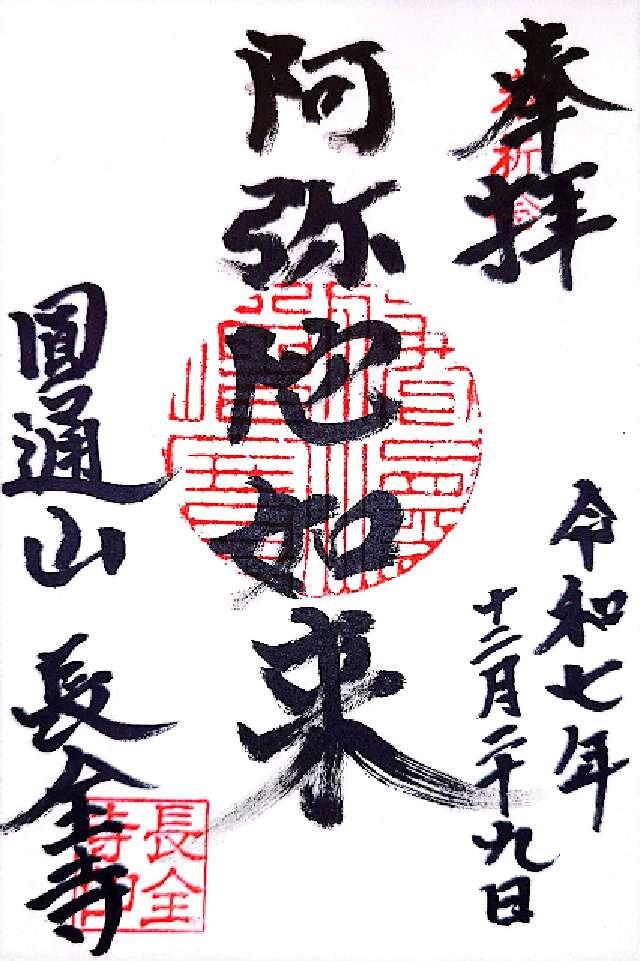 奉拝
令和七年
十二月二十九日
阿弥陀如来
圓通山
長全寺
長全
寺印